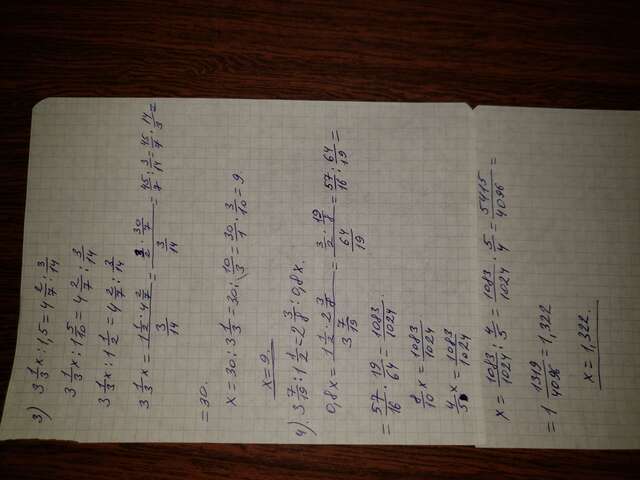 3) 3 1/3 x : 1,5 = 4 2/7 : 3/14
3 1/3 x : 1 5/10 = 4 2/7 : 3/14
3 1/3 x : 1 1/2 = 4 2/7 : 3/14
3 1/3 x = (1 1/2 · 4 2/7)/(3/14) = (3/2 · 30/7)/(3/14) = 45/7 : 3/14 = 45/7 · 14/3 =
= 30.
x = 30 : 3 1/3 = 30 : 10/3 = 30/1 · 3/10 = 9.
x = 9.
4). 3 7/19 : 1 1/2 = 2 3/8 : 0,8x.
0,8x = (1 1/2 · 2 3/8)/(3 7/19) = (3/2 · 19/8)/(64/19) = 57/16 : 64/19 =
= 57/16 · 19/64 = 1083/1024
8/10 x = 1083/1024
4/5 x = 1083/1024
x = 1083/1024 : 4/5 = 1083/1024 · 5/4 = 5415/4096 =
= 1 1319/4096 = 1,322
x = 1,322.